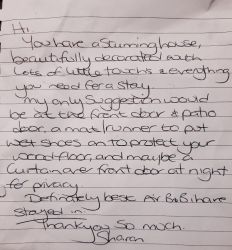 Hi,
You have a stunning house,
beautifully decorated with
Lots of little touch's & everything
you need for a stay.
My only suggestion would
be at the front door & patio
door, a mat/runner to put
wet shoes on to protect your
wood floor, and maybe a
Curtain over front door at night
for privacy.
Definately best Air B&B i have
stayed in.
Thankyou So much.
Sharon